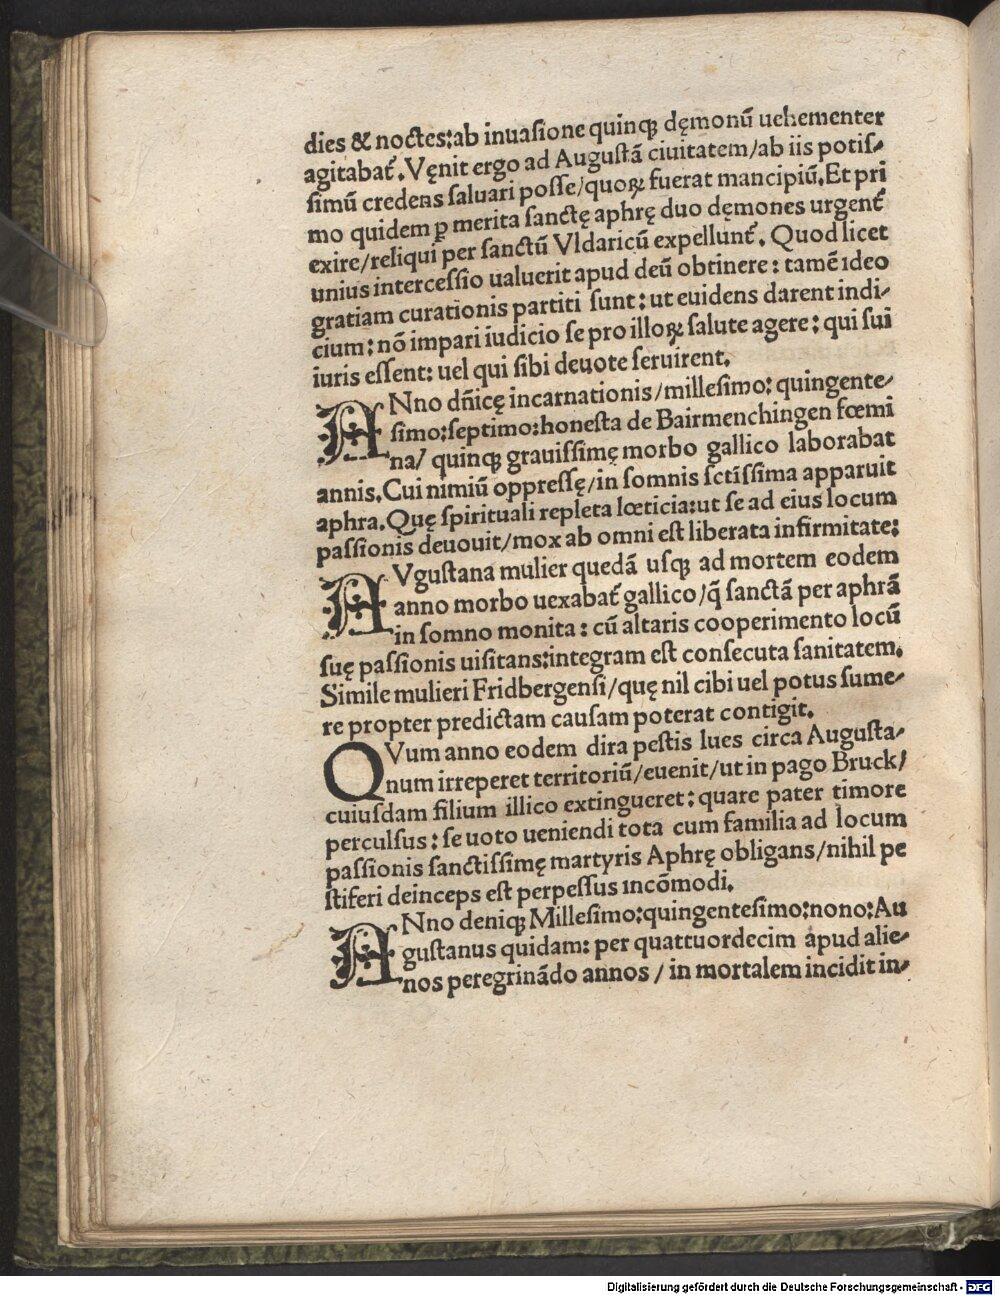 dies & noctes:ab inuasione quinqꝫ dęmonū uehementer
agitabat᷑.Vęnit ergo ad Augustā ciuitatem/ab iis potis⸗
simū credens saluari posse/quoꝝ fuerat mancipiū.Et pri
mo quidem ꝑ merita sanctę aphrę duo dęmones urgent᷑
exire/reliqui per sanctū Vldaricū expellunt᷑. Quod licet
unius intercessio ualuerit apud deū obtinere: tamē ideo
gratiam curationis partiti sunt: ut euidens darent indi⸗
cium: nō impari iudicio se pro illoꝝ salute agere: qui sui
iuris essent: uel qui sibi deuote seruirent.
ANno dn̄icę incarnationis/millesimo: quingente⸗
simo:septimo:honesta de Bairmenchingen fœmi
na/ quinqꝫ grauissimę morbo gallico laborabat
annis.Cui nimiū oppressę/in somnis sctissima apparuit
aphra.Quę spirituali repleta lœticia:ut se ad eius locum
passionis deuouit/mox ab omni est liberata infirmitate:
AVgustana mulier quedā usqꝫ ad mortem eodem
anno morbo uexabat᷑ gallico/q̄ sanctā per aphrā
in somno monita: cū altaris cooperimento locū
suę passionis uisitans:integram est consecuta sanitatem.
Simile mulieri Fridbergensi/quę nil cibi uel potus sume⸗
re propter predictam causam poterat contigit.
QVum anno eodem dira pestis lues circa Augusta⸗
num irreperet territoriū/euenit/ut in pago Bruck/
cuiusdam filium illico extingueret: quare pater timore
perculsus: se uoto ueniendi tota cum familia ad locum
passionis sanctissimę martyris Aphrę obligans/nihil pe
stiferi deinceps est perpessus incōmodi.
ANno deniqꝫ Millesimo:quingentesimo:nono:Au
gustanus quidam: per quattuordecim apud alie⸗
nos peregrinādo annos / in mortalem incidit in⸗
Digitalisierung gefördert durch die Deutsche Forschungsgemeinschaft - DFG